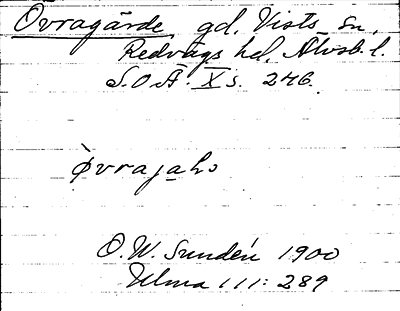 Övragärde, gd, Vists sn,
Redvägs hd, Älvsb. l.
S.O.Ä. X s. 246.
O.W. Sundén 1900
Ulma 111: 289